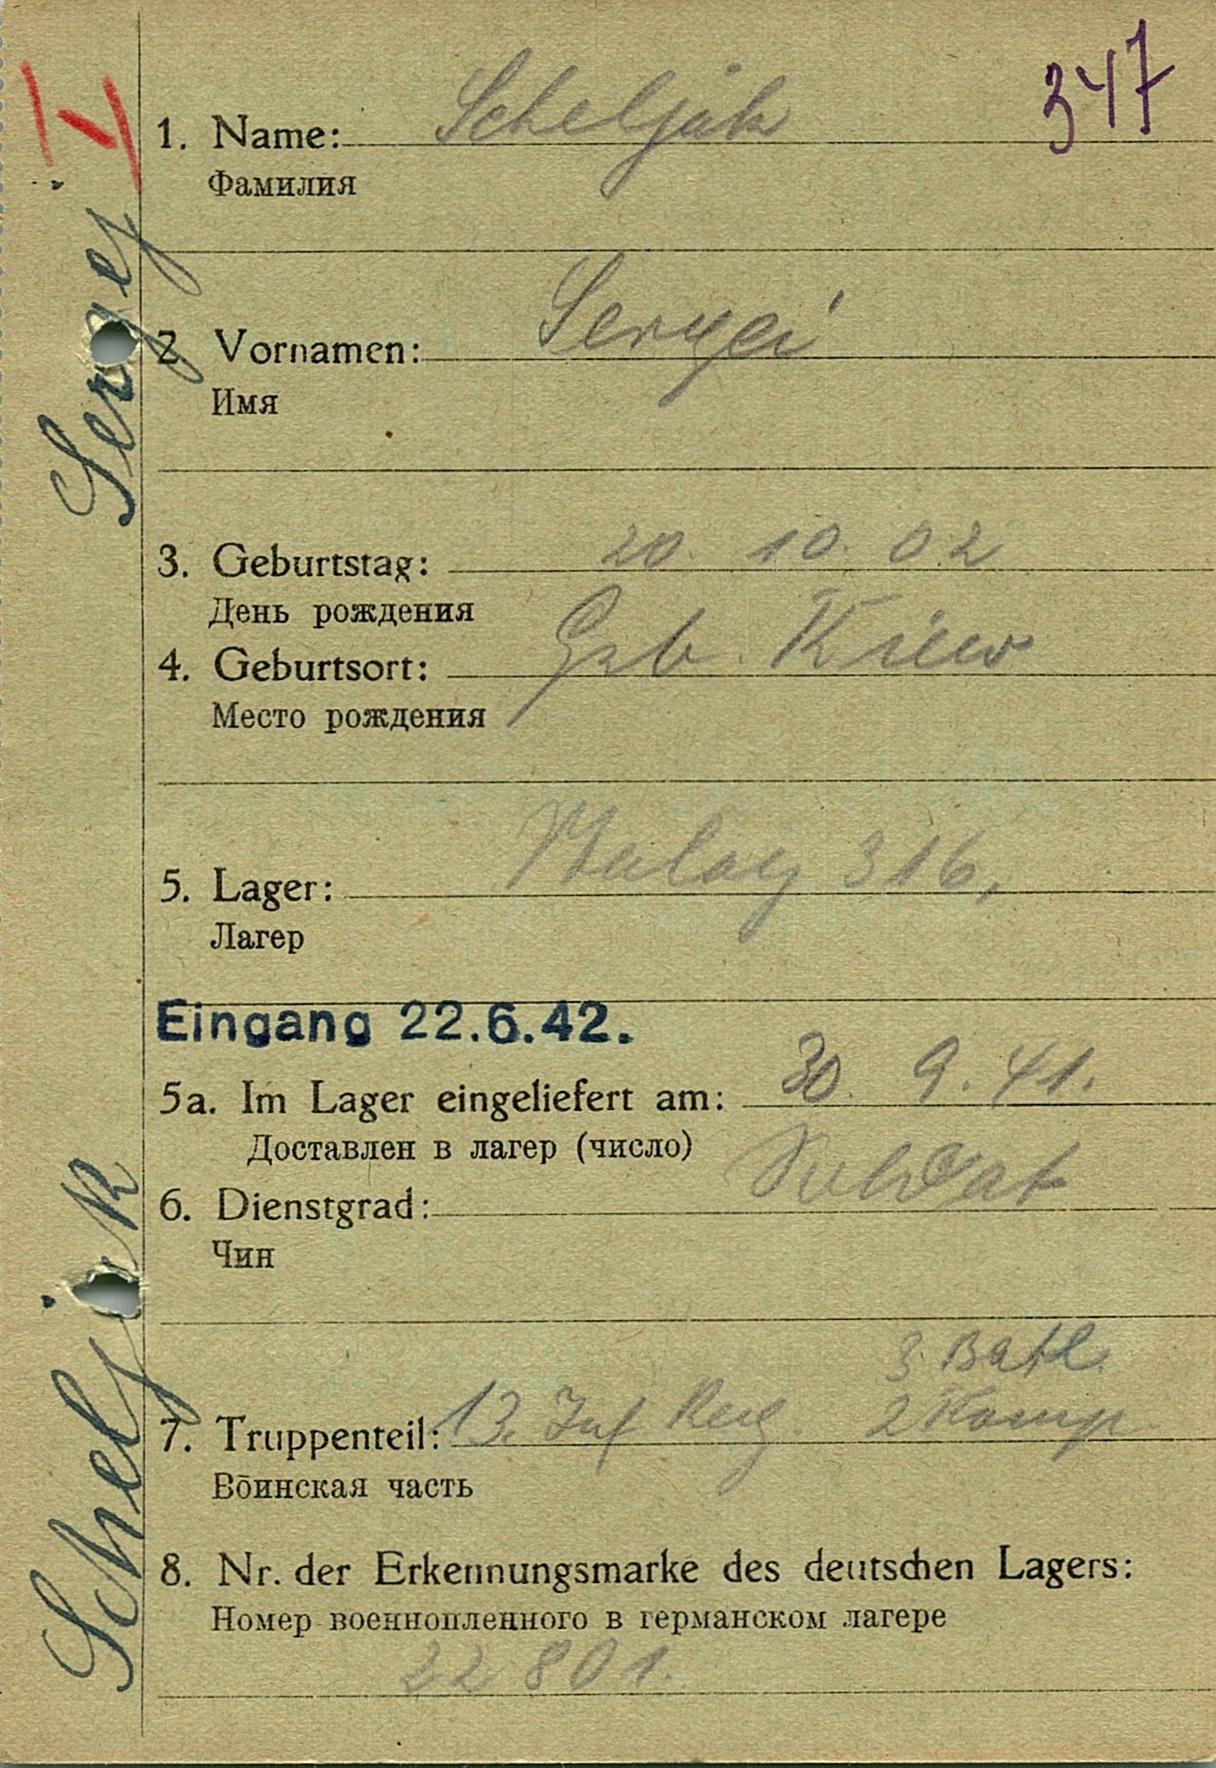 347
1. Name: Scheljak
Фамилия
2. Vornamen: Sergei
Имя
3. Geburtstag: 20. 10. 02
День рождения
4. Geburtsort: Geb. Kiew
Место рождения
5. Lager: Stalag 316.
Лагер
Eingang 22.6.42.
5a. Im Lager eingeliefert am: 30. 9. 41.
Доставлен в лагер (число)
6. Dienstgrad: Soldat
Чин
3. Batl.
7. Truppenteil: 13. Inf Reg. 2 Komp.
Воинская часть
8. Nr. der Erkennungsmarke des deutschen Lagers:
Номер военнопленного в германском лагере
22801.
Scheljak Sergej